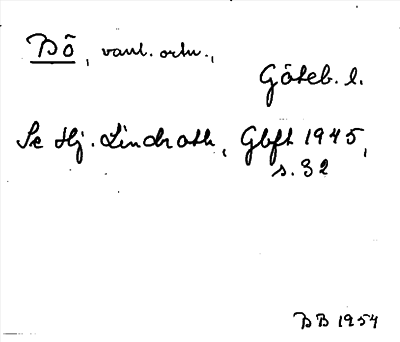 Bö, vanl. ortn.,
Göteb. l.
Se Hj. Lindroth, Gbft 1945,
s. 32
BB 1954